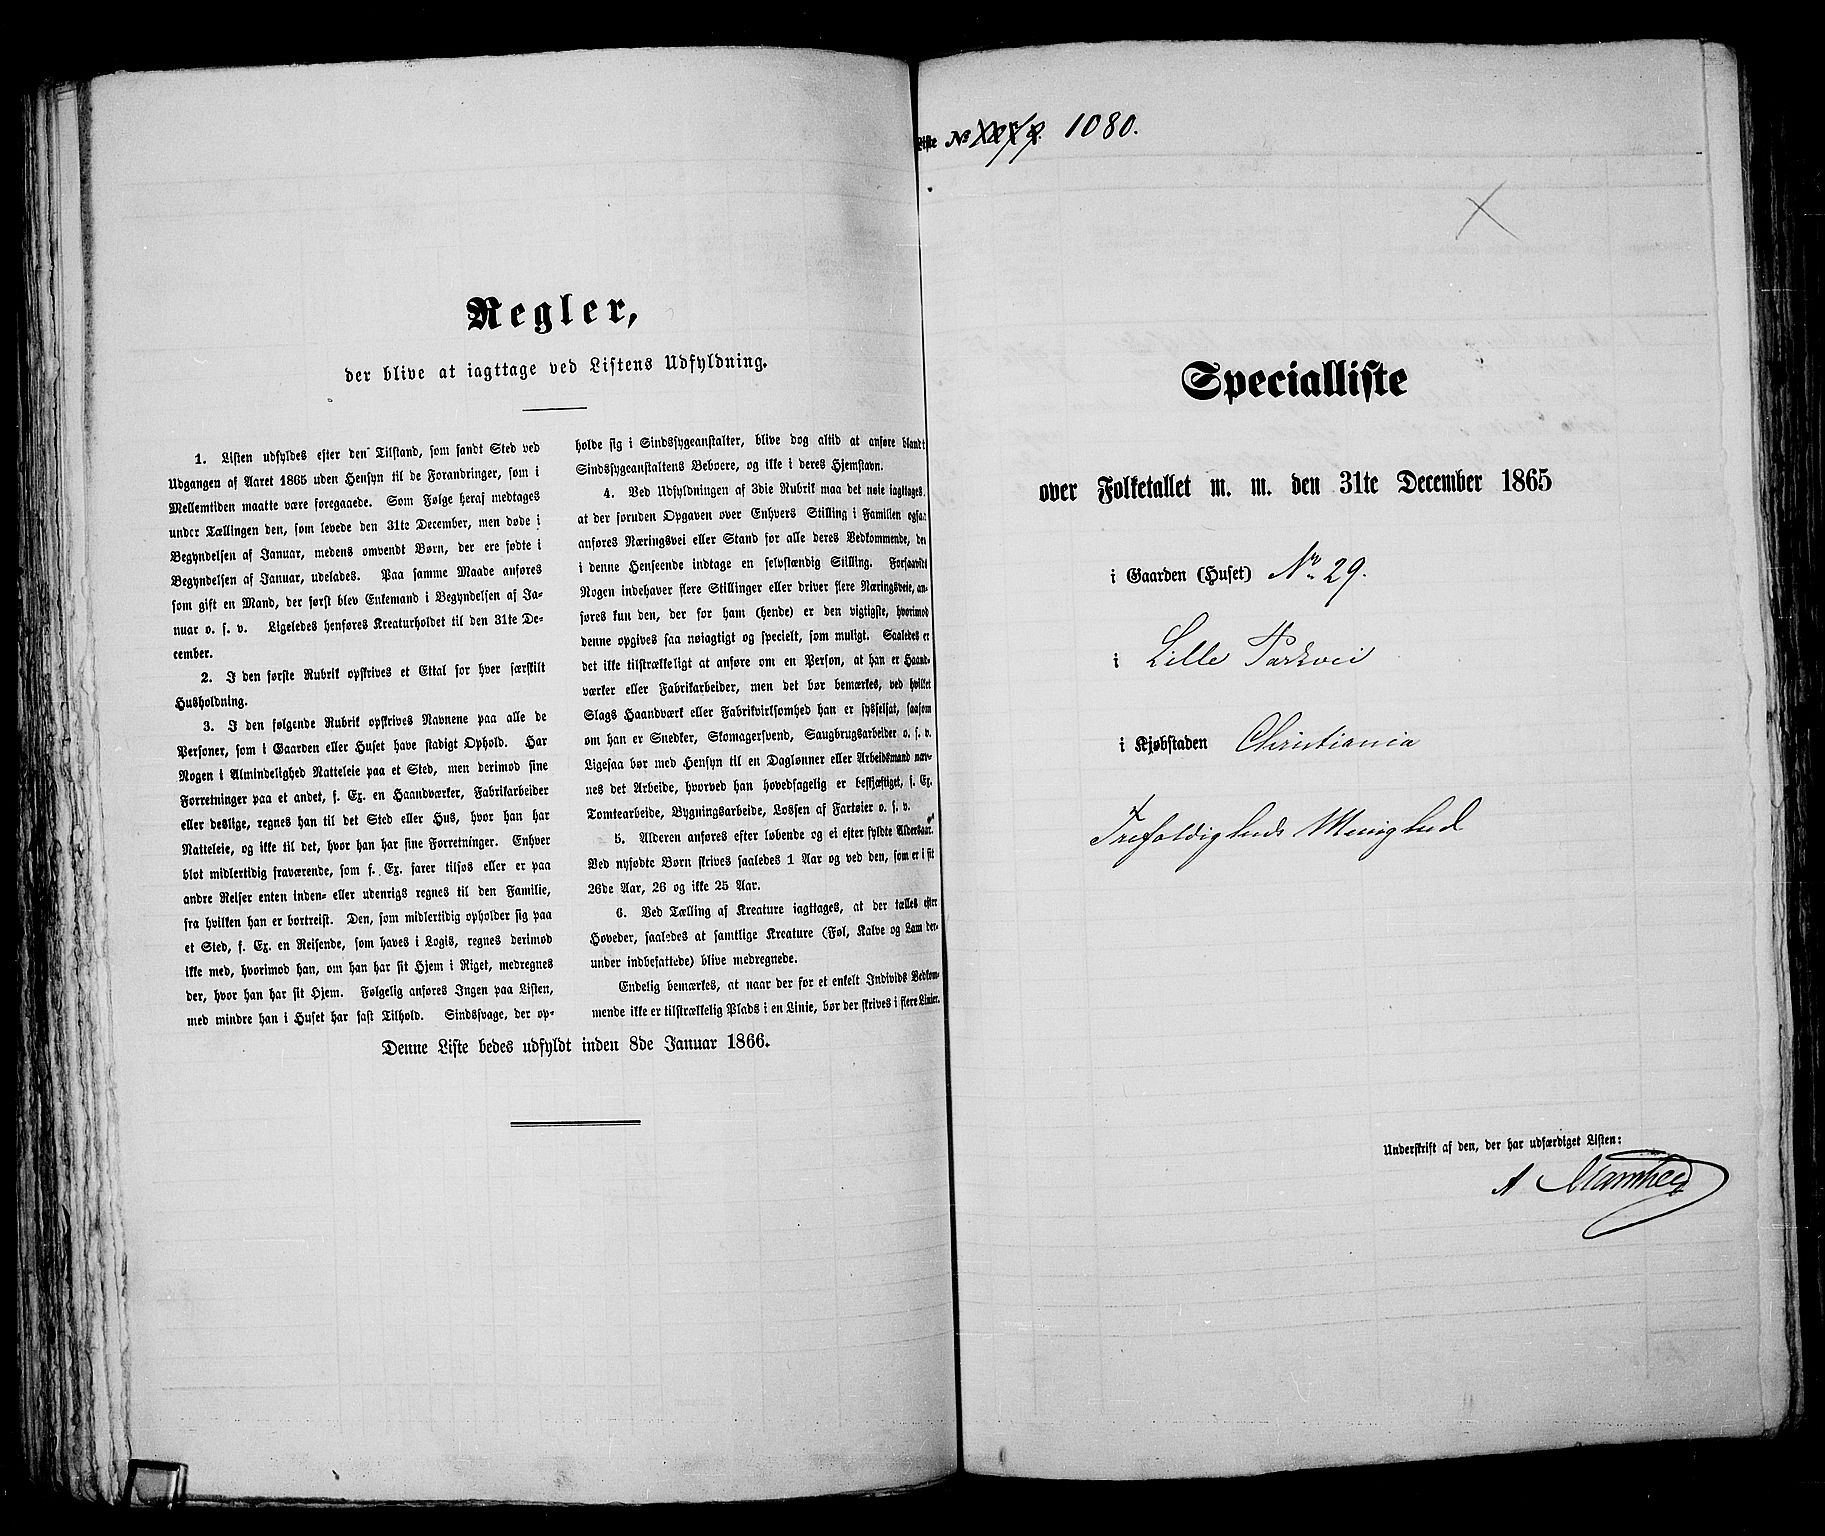 Regler,
der blive at iagttage ved Listens Udfyldning.
1. Listen udfyldes efter den Tilstand, som fandt Sted ved
Udgangen af Aaret 1865 uden Hensyn til de Forandringer, som i
Mellemtiden maatte være foregaaede. Som Følge heraf medtages
under Tællingen den, som levede den 31te December, men døde i
Begyndelsen af Januar, medens omvendt Børn, der ere fødte i
Begyndelsen af Januar, udelades. Paa samme Maade anføres
som gift en Mand, der først blev Enkemand i Begyndelsen af Ja-
nuar o. s. v. Ligeledes henføres Kreaturholdet til den 31te De-
cember.
2. I den første Rubrik opskrives et Ettal for hver særskilt
Husholdning.
3. I den følgende Rubrik opskrives Navnene paa alle de
Personer, som i Gaarden eller Huset have stadigt Ophold. Har
Nogen i Almindelighed Natteleie paa et Sted, men derimod sine
Forretninger paa et andet, f. Ex. en Haandværker, Fabrikarbeider
eller deslige, regnes han til det Sted eller Hus, hvor han har
Natteleie, og ikke til det, hvor han har sine Forretninger. Enhver
blot midlertidig fraværende, som f. Ex. farer tilsøs eller er paa
andre Reiser enten inden- eller udenrigs regnes til den Familie,
fra hvilken han er bortreist. Den, som midlertidig opholder sig paa
et Sted, f. Ex. en Reisende, som haves i Logis, regnes derimod
ikke med, hvorimod han, om han har sit Hjem i Riget, medregnes
der, hvor han har sit Hjem. Følgelig anføres Ingen paa Listen,
med mindre han i Huset har fast Tilhold. Sindssvage, der op-
holde sig i Sindssygeanstalter, blive dog altid at anføre blandt
Sindssygeanstaltens Beboere, og ikke i deres Hjemstavn.
4. Ved Udfyldningen af 3die Rubrik maa det nøie iagttages,
at der foruden Opgaven over Enhvers Stilling i Familien ogsaa
anføres Næringsvei eller Stand for alle deres Vedkommende, der
i denne Henseende indtage en selvstændig Stilling. Forsaavidt
Nogen indehaver flere Stillinger eller driver flere Næringsveie, an-
føres kun den, der for ham (hende) er den vigtigste, hvorimod
denne opgives saa nøiagtigt og specielt, som muligt. Saaledes er
det ikke tilstrækkeligt at anføre om en Person, at han er Haand-
værker eller Fabrikarbeider, men det bør bemærkes, ved hvilket
Slags Haandværk eller Fabrikvirksomhed han er sysselsat, saasom
om han er Snedker, Skomagersvend, Saugbrugsarbeider o. s. v.
Ligesaa bør med Hensyn til en Daglønner eller Arbeidsmand næv-
nes det Arbeide, hvorved han hovedsagelig er beskjæftiget, f. Ex.
Tomtearbeide, Bygningsarbeide, Lossen af Fartøier o. s. v.
5. Alderen anføres efter løbende og ei efter fyldte Aldersaar.
Ved nyfødte Børn skrives saaledes 1 Aar og ved den, som er i sit
26de Aar, 26 og ikke 25 Aar.
6. Ved Tælling af Kreature iagttages, at der tælles efter
Hoveder, saaledes at samtlige Kreature (Føl, Kalve og Lam der-
under indbefattede) blive medregnede.
Endelig bemærkes, at naar der for et enkelt Individs Vedkom-
mende ikke er tilstrækkelig Plads i en Linie, bør der skrives i flere Linier.
Denne Liste bedes udfyldt inden 8de Januar 1866.
Liste No 1080.
Specialliste
over Folketallet m. m. den 31te December 1865
i Gaarden (Huset) No 29.
i Lille Parkvei
i Kjøbstaden Christiania
Trefoldigheds Menighed
Underskrift af den, der har udfærdiget Listen:
A